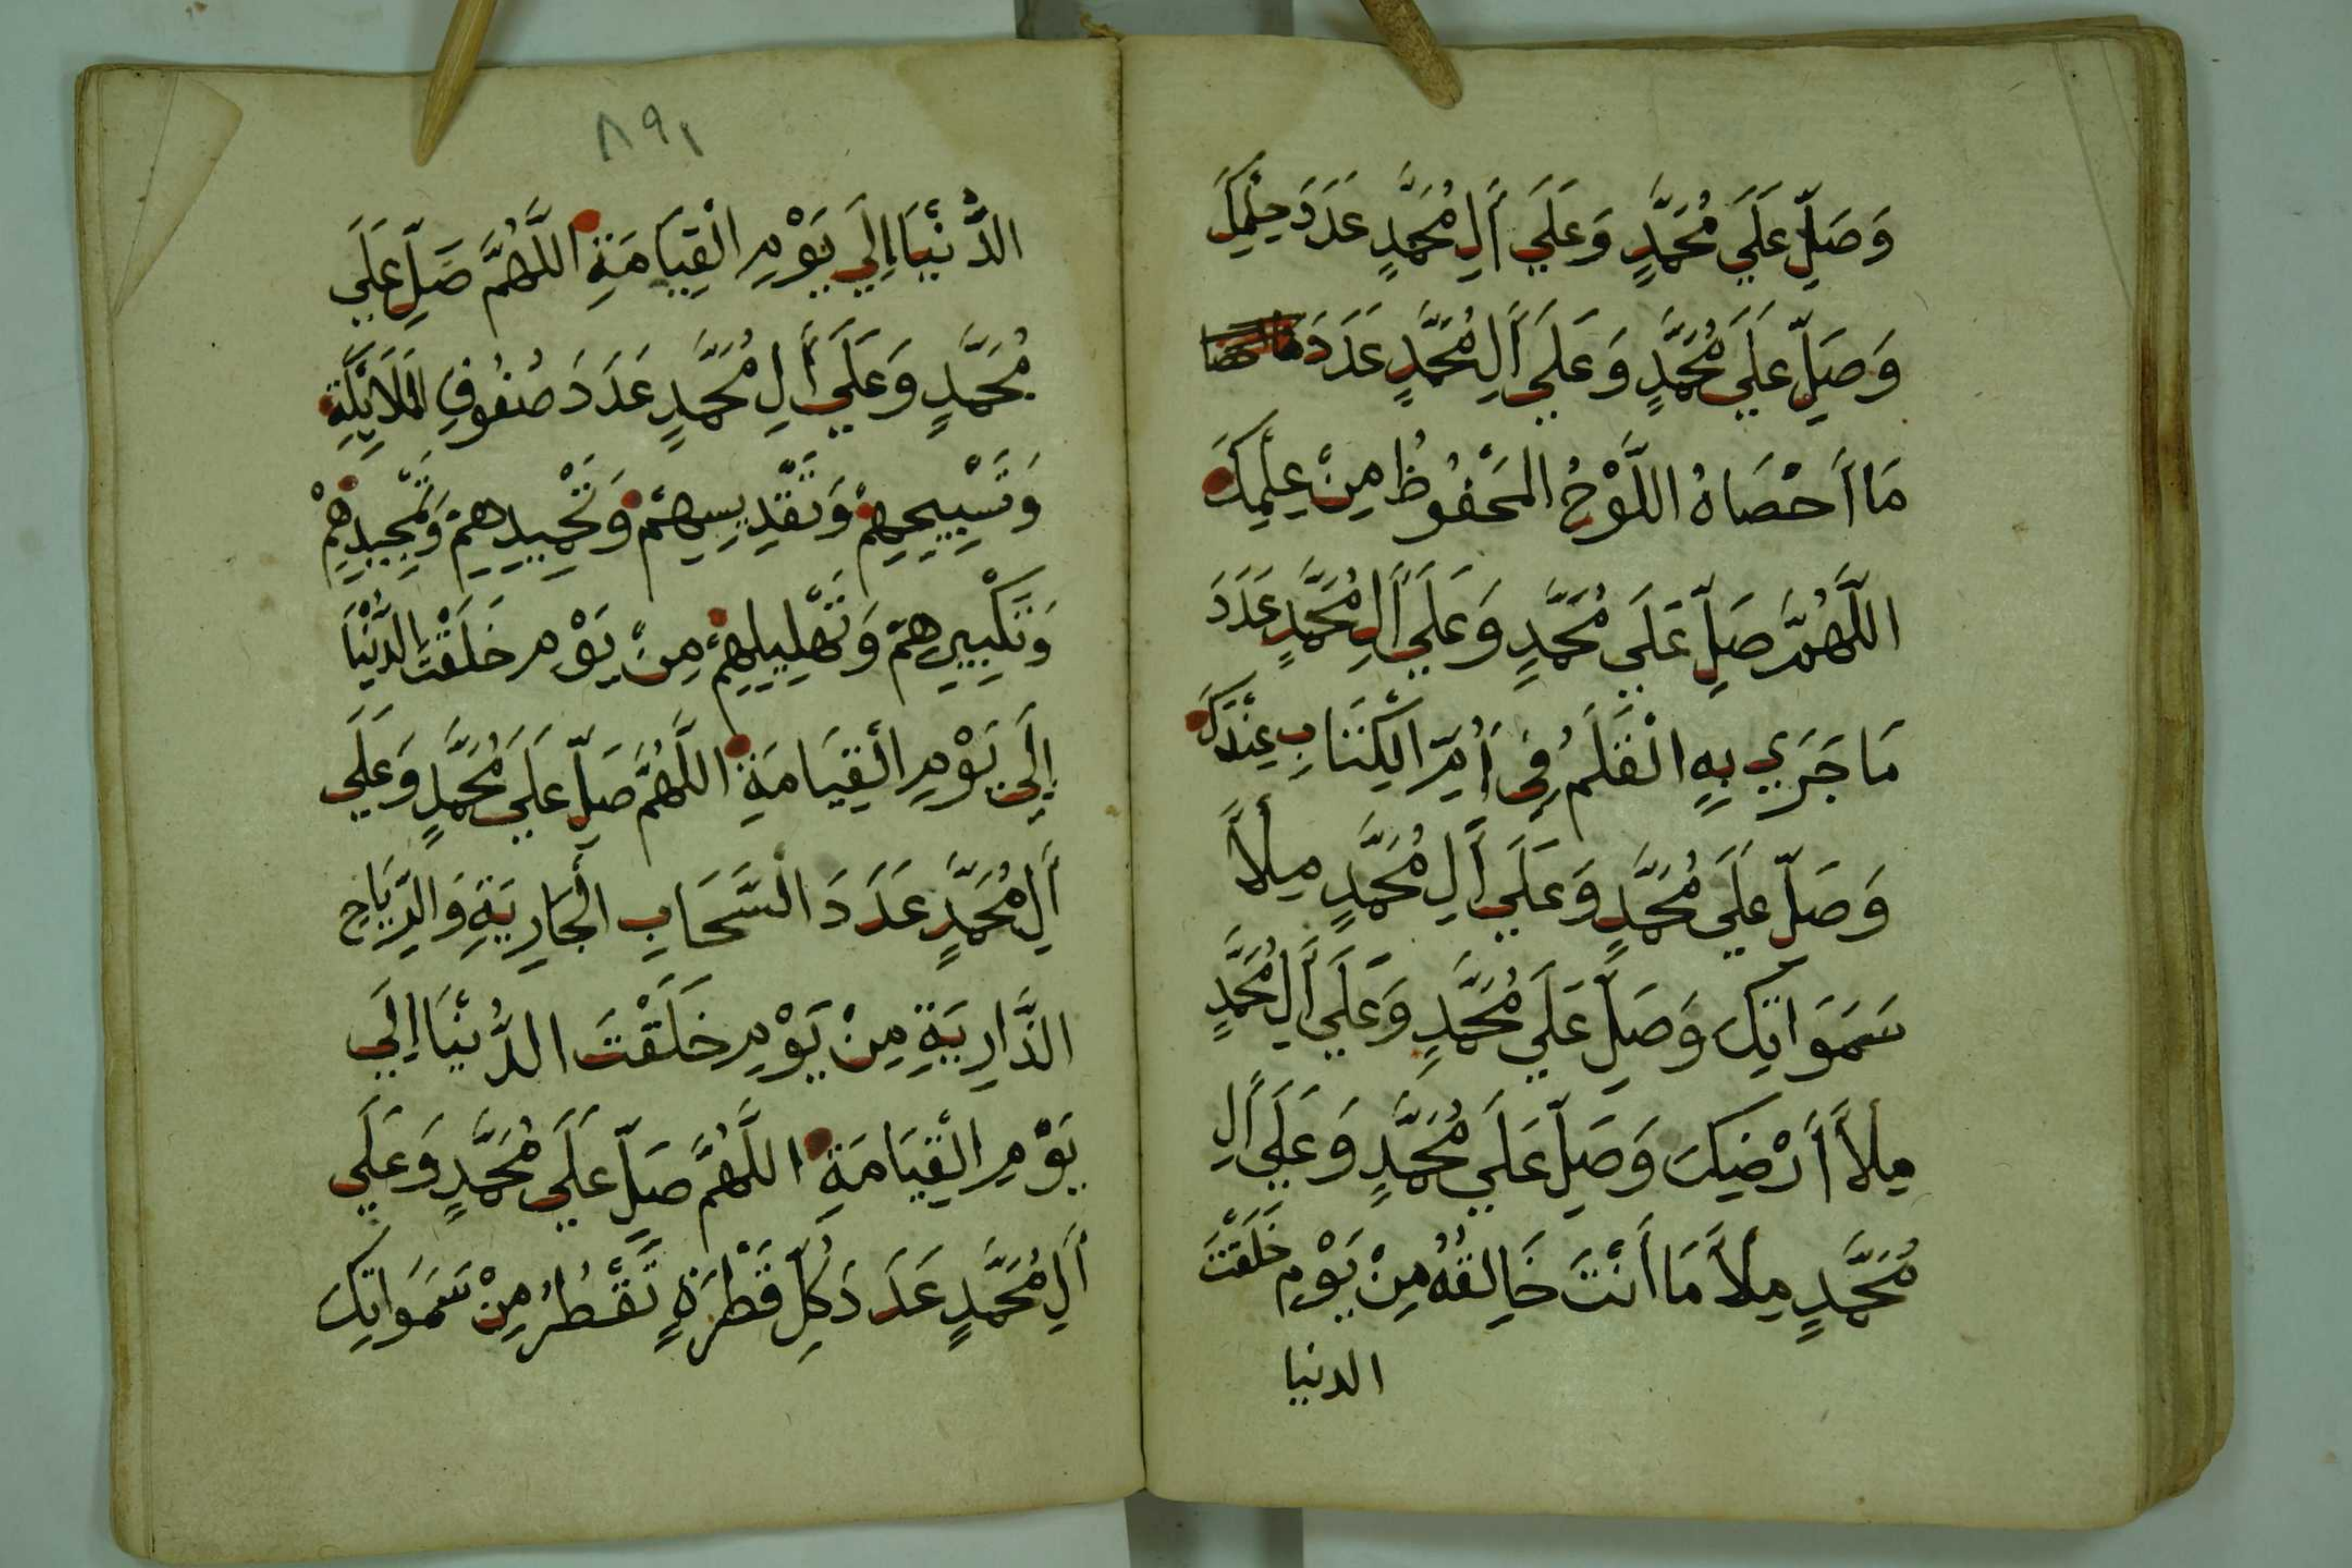 وَصَلِّ عَلَي مُحَمَّدٍ وَعَلَي اَلِ مُحَمَّدٍ عَدَدَ حِلْمِكَ
وَصَلِّ عَلَي مُحَمَّدٍ وَعَلَي اَلِ مُحَمَّدٍ عَدَدَ
مَا اَحْصَاهُ اللَّوْحُ المَحْفُوظُ مِنْ عِلْمِكَ
اللَّهُمَّ صَلِّ عَلَي مُحَمَّدٍ وَعَلَي اَلِ مُحَمَّدٍ عَدَدَ
مَا جَرَي بِهِ الْقَلَمُ فِي اُمِّ الْكِتَابِ عِنْدَكَ
وَصَلِّ عَلَي مُحَمَّدٍ وَعَلَي اَلِ مُحَمَّدٍ مِلْأَ
سَمَوَاتِكَ وَصَلِّ عَلَي مُحَمَّدٍ وَعَلَي اَلِ مُحَمَّدٍ
مِلْأَ اَرْضِكَ وَصَلِّ عَلَي مُحَمَّدٍ وَعَلَي اَلِ
مُحَمَّدٍ مِلْأَ مَا اَنْتَ خَالِقُهُ مِنْ يَوْمِ خَلَقْتَ
الدنيا
٨٩١
الدُّنْيَا اِلَي يَوْمِ الْقِيَامَةِ اللَّهُمَّ صَلِّ عَلَي
مُحَمَّدٍ وَعَلَي اَلِ مُحَمَّدٍ عَدَدَ صُفُوفِ الْمَلَائِكَةِ
وَتَسْبِيحِهِمْ وَتَقْدِيسِهِمْ وَتَحْمِيدِهِمْ وَتَمْجِيدِهِمْ
وَتَكْبِيرِهِمْ وَتَهْلِيلِهِمْ مِنْ يَوْمِ خَلَقْتَ الدُّنْيَا
اِلَي يَوْمِ الْقِيَامَةِ اللَّهُمَّ صَلِّ عَلَي مُحَمَّدٍ وَعَلَي
اَلِ مُحَمَّدٍ عَدَدَ السَّحَابِ الْجَارِيَةِ وَالرِّيَاحِ
الذَّارِيَةِ مِنْ يَوْمِ خَلَقْتَ الدُّنْيَا اِلَي
يَوْمِ الْقِيَامَةِ اللَّهُمَّ صَلِّ عَلَي مُحَمَّدٍ وَعَلَي
اَلِ مُحَمَّدٍ عَدَدَ كُلِّ قَطْرَةٍ تَقْطُرُ مِنْ سَمَوَاتِكَ